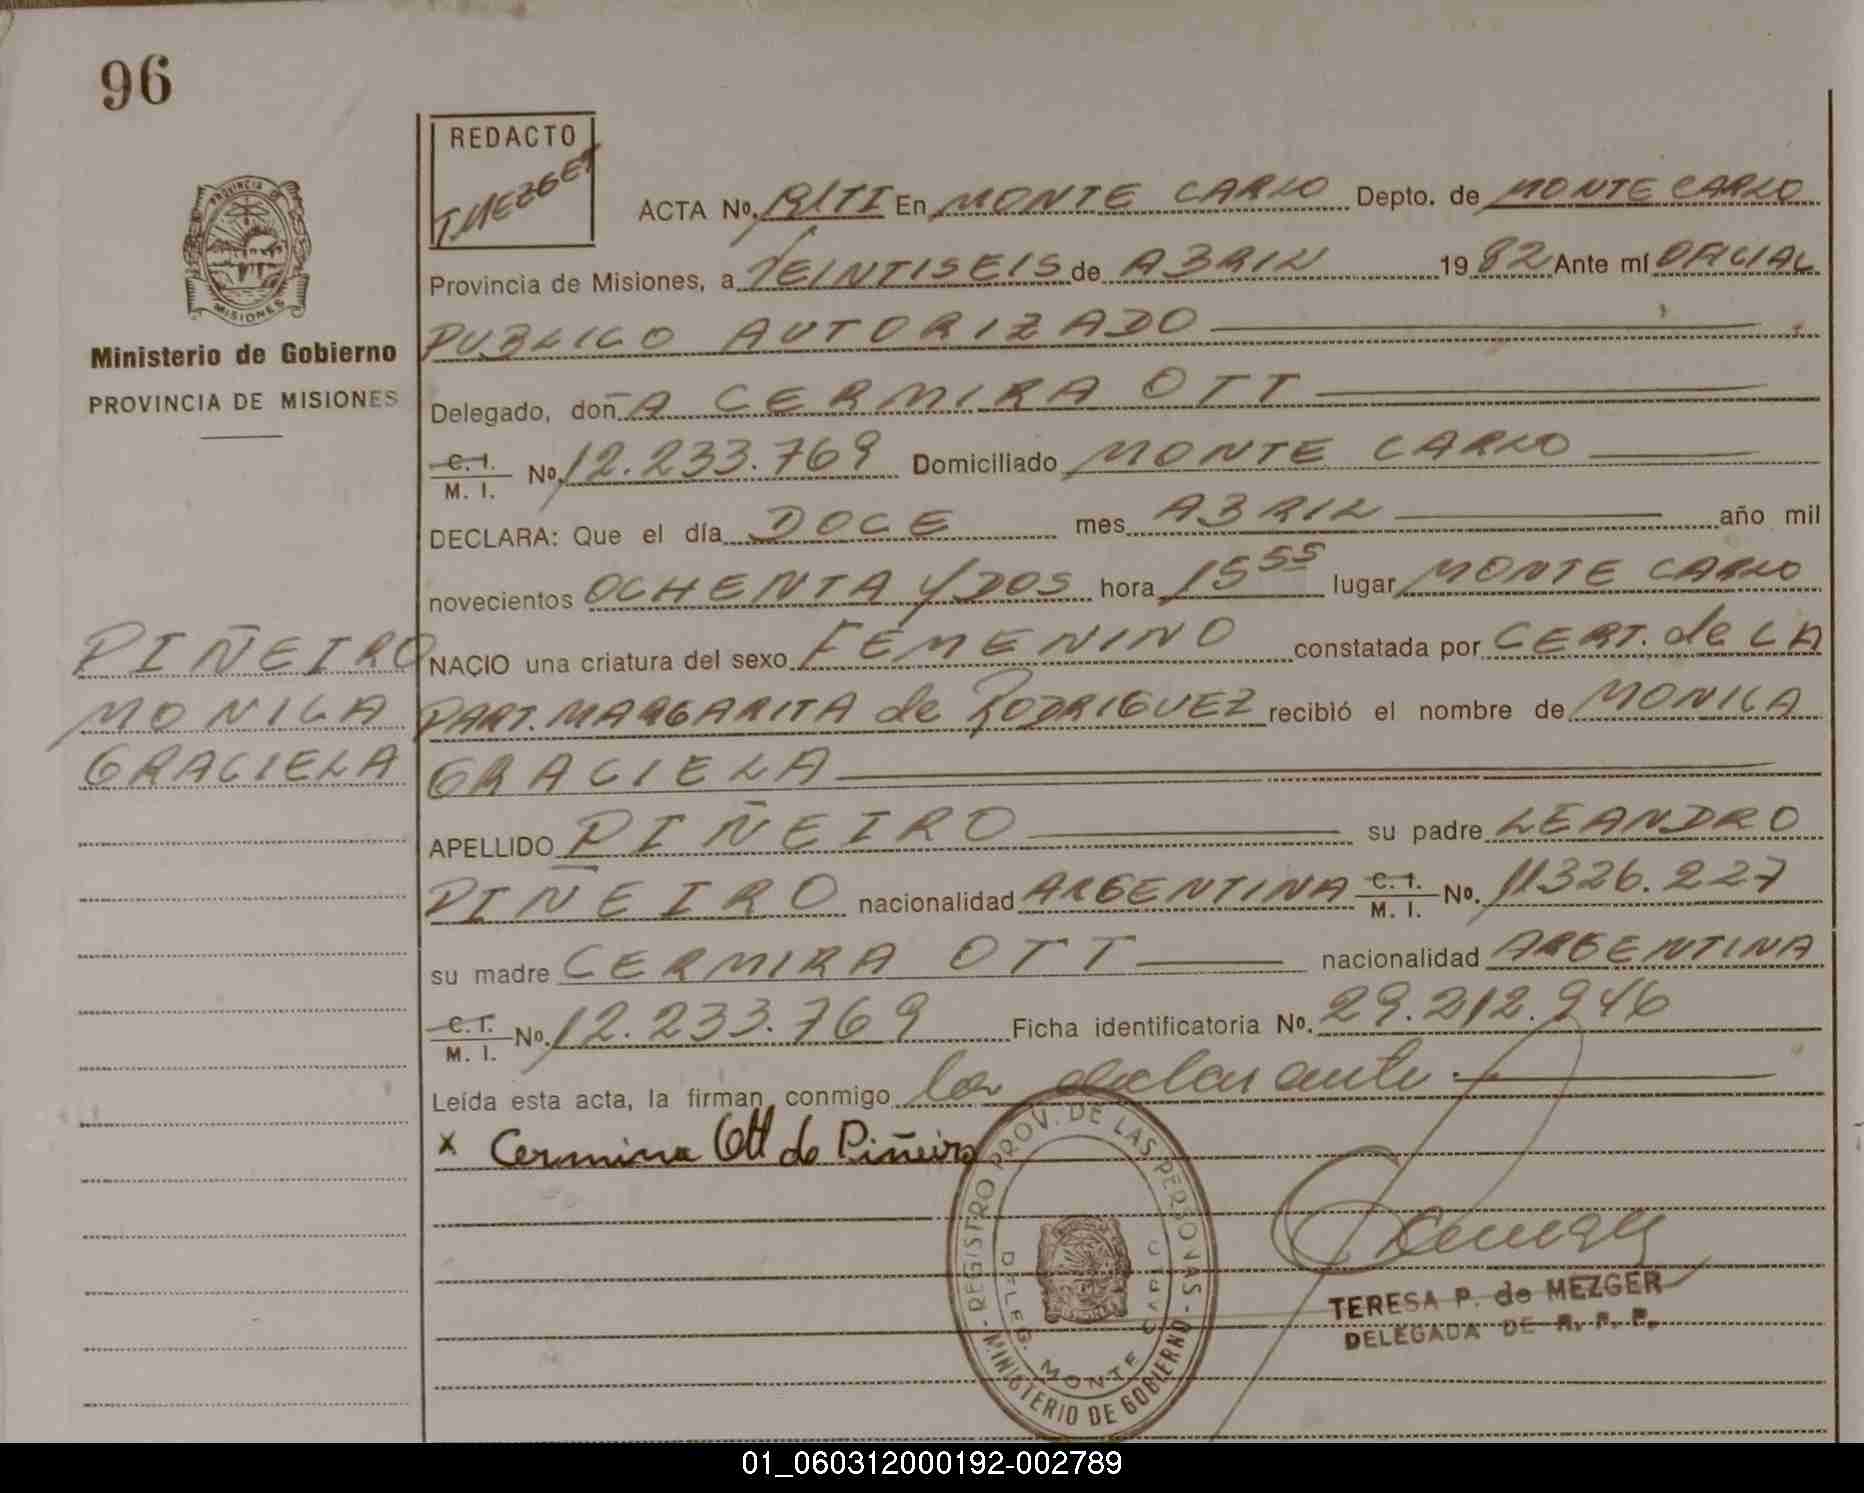 96
REDACTO
T. MEZGER
PROVINCIA DE
MISIONES
Ministerio de Gobierno
PROVINCIA DE MISIONES
ACTA Nº. En MONTE CARLO Depto. de MONTE CARLO
Provincia de Misiones, a VEINTISEIS de ABRIL 1982 Ante mí OFICIAL
PUBLICO AUTORIZADO
Delegado, doñA CERMIRA OTT
C.I. M. I. Nº. 12.233.769 Domiciliado MONTE CARLO
DECLARA: Que el día DOCE mes ABRIL año mil
novecientos OCHENTA Y DOS hora 15 55 lugar MONTE CARLO
NACIO una criatura del sexo FEMENINO constatada por CERT. de LA
PART. MARGARITA de RODRIGUEZ recibió el nombre de MONICA
GRACIELA
PIÑEIRO
MONICA
GRACIELA
APELLIDO PIÑEIRO su padre LEANDRO
PIÑEIRO nacionalidad ARGENTINA C.I. M. I. Nº. 11326.227
su madre CERMIRA OTT nacionalidad ARGENTINA
C.I. M. I. Nº. 12.233.769 Ficha identificatoria Nº. 29.212.946
Leída esta acta, la firman conmigo la declarante.
x Cermira Ott de Piñeiro
REGISTRO PROV. DE LAS PERSONAS
MINISTERIO DE GOBIERNO
DELEG. MONTE CARLO
TERESA P. de MEZGER
DELEGADA DE R. P. P.
01_060312000192-002789